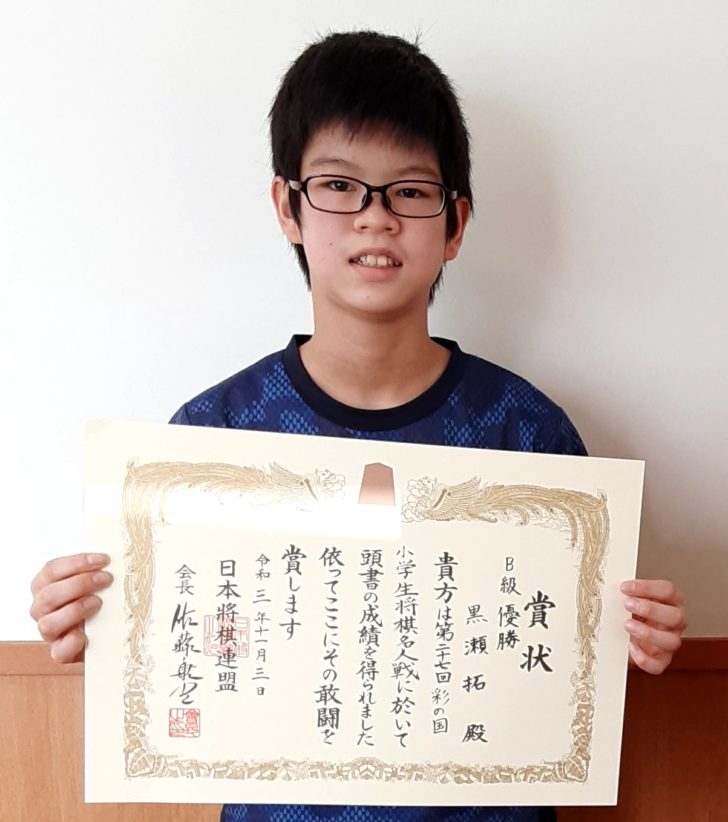 賞状
B級優勝
黒瀬拓殿
貴方は第二十七回彩の国
小学生将棋名人戦に於いて
頭書の成績を得られました
依ってここにその敢闘を
賞します
令和三年十一月三日
日本將棋連盟
会長 佐藤康光